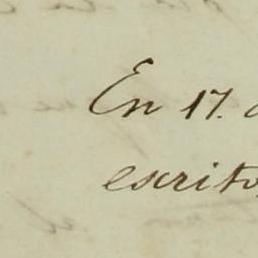 En 17.
escrito